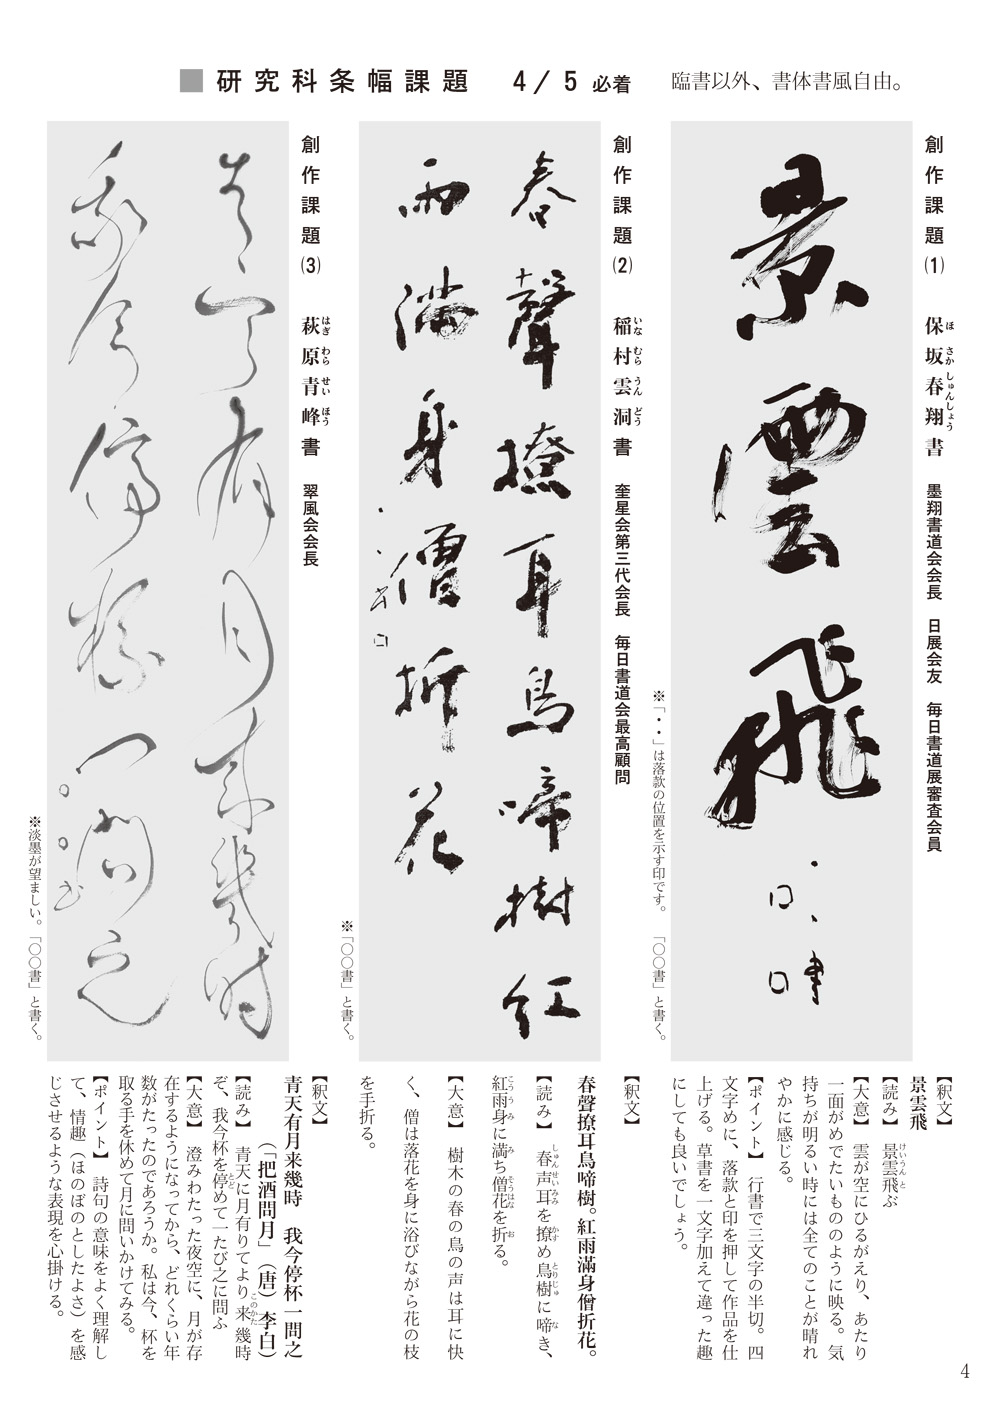 ■研究科条幅課題　4/5必着　臨書以外、書体書風自由。
創作課題(1)　保坂春翔書　墨翔書道会会長　日展会友　毎日書道展審査会員
ほ　さか　しゅんしょう
景雲飛
※「・・」は落款の位置を示す印です。　「〇〇書」と書く。
【釈文】
景雲飛
【読み】　景雲飛ぶ
けいうんと
【大意】　雲が空にひるがえり、あたり
一面がめでたいもののように映る。気
持ちが明るい時には全てのことが晴れ
やかに感じる。
【ポイント】　行書で三文字の半切。四
文字めに、落款と印を押して作品を仕
上げる。草書を一文字加えて違った趣
にしても良いでしょう。
創作課題(2)　稲村雲洞書　奎星会第三代会長　毎日書道会最高顧問
いな　むら　うん　どう
春聲撩耳鳥啼樹紅
雨滿身僧折花
※「〇〇書」と書く。
【釈文】
春聲撩耳鳥啼樹。紅雨滿身僧折花。
【読み】　春声耳を撩め鳥樹に啼き、
しゅんせいみみ　かす　とりじゅ　な
紅雨身に満ち僧花を折る。
こうう　み　み　そうはな　お
【大意】　樹木の春の鳥の声は耳に快
く、僧は落花を身に浴びながら花の枝
を手折る。
創作課題(3)　萩原青峰書　翠風会会長
はぎ　わら　せい　ほう
青天有月来幾時
我今停杯一問之
※淡墨が望ましい。「〇〇書」と書く。
【釈文】
青天有月来幾時　我今停杯一問之
（「把酒問月」（唐）李白）
【読み】　青天に月有りてより来幾時
このかた
ぞ、我今杯を停めて一たび之に問ふ
とど
【大意】　澄みわたった夜空に、月が存
在するようになってから、どれくらい年
数がたったのであろうか。私は今、杯を
取る手を休めて月に問いかけてみる。
【ポイント】　詩句の意味をよく理解し
て、情趣（ほのぼのとしたよさ）を感
じさせるような表現を心掛ける。
4